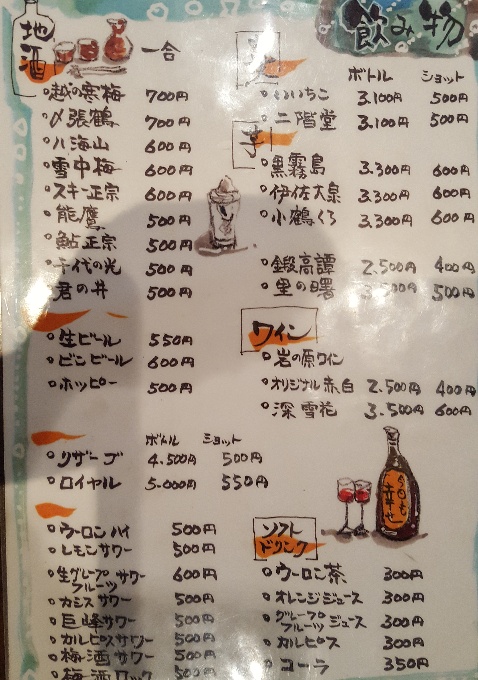 飲み物
地酒 一合
越の寒梅 700円
〆張鶴 700円
八海山 600円
雪中梅 600円
スキー正宗 600円
能鷹 500円
鮎正宗 500円
千代の光 500円
君の井 500円
生ビール 550円
ビンビール 600円
ホッピー 500円
ボトル ショット
リザーブ 4.500円 500円
ロイヤル 5.000円 550円
ウーロンハイ 500円
レモンサワー 500円
生グレープフルーツサワー 600円
カシスサワー 500円
巨峰サワー 500円
カルピスサワー 500円
梅酒サワー 500円
梅酒ロック 500円
ボトル ショット
いいちこ 3.100円 500円
二階堂 3.100円 500円
芋
黒霧島 3.300円 600円
伊佐大泉 3.300円 600円
小鶴くろ 3.300円 600円
鍛高譚 2.500円 400円
里の曙 3.500円 500円
ワイン
岩の原ワイン
オリジナル赤白 2.500円 400円
深雪花 3.500円 600円
ソフトドリンク
ウーロン茶 300円
オレンジジュース 300円
グレープフルーツジュース 300円
カルピス 300円
コーラ 350円